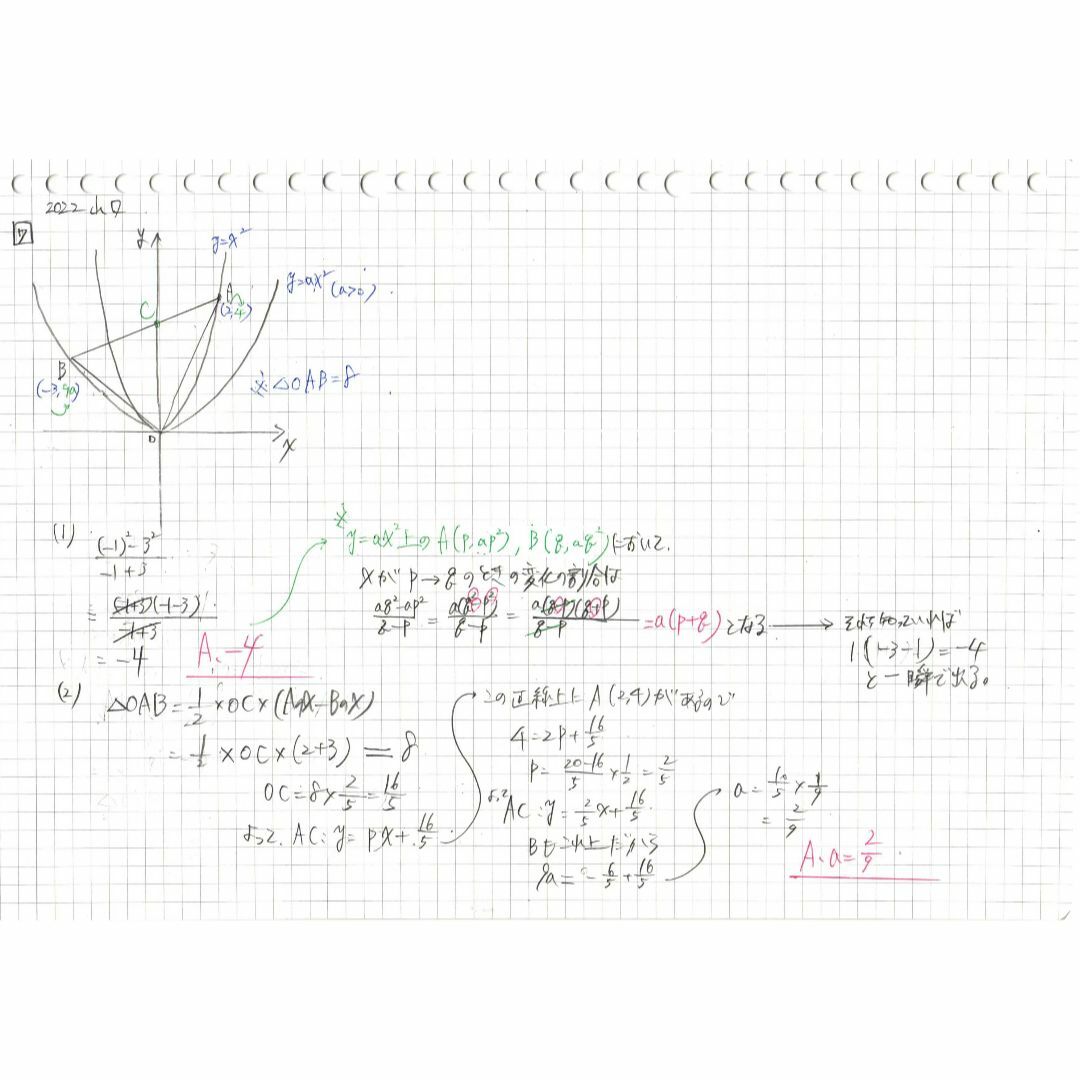 2022
7
y
y=x²
y=ax² (a>0)
A
(2,4)
C
B
(-3,9a)
※ △OAB=8
O
x
(1)
(-1)²-3²/-1+3
= (-1+3)(-1-3)/-1+3
= -4
A. -4
※ y=ax²上の A(p,ap²), B(q,aq²)において.
xがp→qのときの変化の割合は
aq²-ap²/q-p = a(q²-p²)/q-p = a(q-p)(q+p)/q-p = a(p+q) となる →
それを知っていれば
1(-3-1)=-4
と一瞬で出る。
(2)
△OAB=1/2×OC×(AのX-BのX)
= 1/2×OC×(2+3) = 8
OC=8×2/5=16/5
よって. AC: y=px+16/5
この直線上に A(2,4)があるので
4=2p+16/5
p=20-16/5×1/2=2/5
よって AC: y=2/5x+16/5
Bもこれ上だから
9a=-6/5+16/5
a=10/5×1/9
=2/9
A. a=2/9